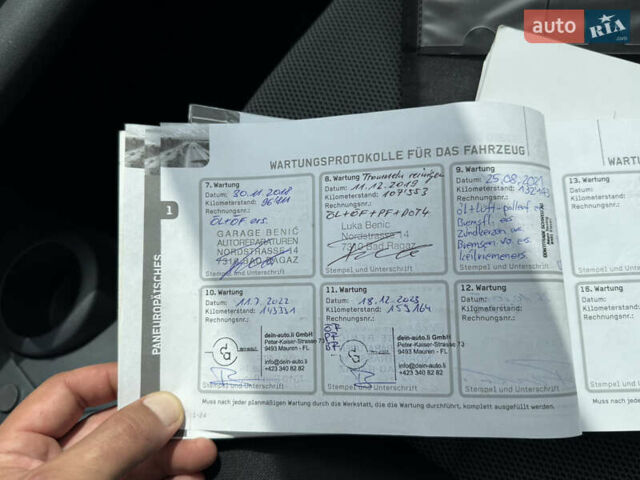 auto RIA.com
WARTUNGSPROTOKOLLE FÜR DAS FAHRZEUG
WART
1
PANEUROPÄISCHES
7. Wartung
Datum: 30.11.2018
Kilometerstand: 96'411
Rechnungsnr.:
ÖL+ÖF ers.
GARAGE BENIĆ
AUTOREPARATUREN
NORDSTRASSE 14
7310 BAD RAGAZ
Stempel und Unterschrift
8. Wartung Trommeln reinigen
Datum: 11.12.2019
Kilometerstand: 107'353
Rechnungsnr.:
ÖL+ÖF+PF+DOT4
Luka Benic
Nordstrasse 14
7310 Bad Ragaz
Stempel und Unterschrift
9. Wartung
Datum: 25.08.2021
Kilometerstand:
Rechnungsnr.:
Öl+Luft+Pollenf. ers
Bremsfl. ers
Zündkerzen ers.
Bremsen vo. ers.
Keilriemen ers.
Stempel und Unterschrift
13.
Datum:
Kilometerstand:
Rechnungsnr.:
Stempel
10. Wartung
Datum: 11.7.2022
Kilometerstand: 143331
Rechnungsnr.:
dein-auto.li GmbH
Peter-Kaiser-Strasse 73
9493 Mauren - FL
info@dein-auto.li
+423 340 82 82
Stempel und Unterschrift
11. Wartung
Datum: 18.12.2023
Kilometerstand: 153164
Rechnungsnr.:
dein-auto.li GmbH
Peter-Kaiser-Strasse 73
9493 Mauren - FL
info@dein-auto.li
+423 340 82 82
Stempel und Unterschrift
12. Wartung
Datum:
Kilometerstand:
Rechnungsnr.:
Stempel und Unterschrift
16.
Datum:
Kilometerstand:
Rechnungsnr.:
Stempel
Muss nach jeder planmäßigen Wartung durch die Werkstatt, die die Wartung durchführt, komplett ausgefüllt werden.
Muss nach
1-24